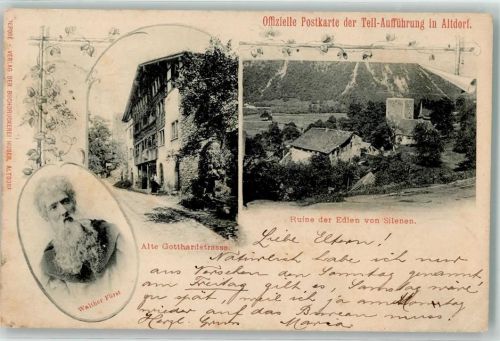 Offizielle Postkarte der Tell-Aufführung in Altdorf.
DEPOSÉ - VERLAG DER BUCHDRUCKEREI HUBER, ALTDORF
Alte Gotthardstrasse.
Ruine der Edlen von Silenen.
Walther Fürst
Liebe Eltern!
Natürlich habe ich nur
aus Versehen den Sonntag genannt
am Freitag gilt es, Samstag wäre
zu spät, weil ich ja am Montag
wieder auf das Bureau muss!
Herzl. Gruss Maria